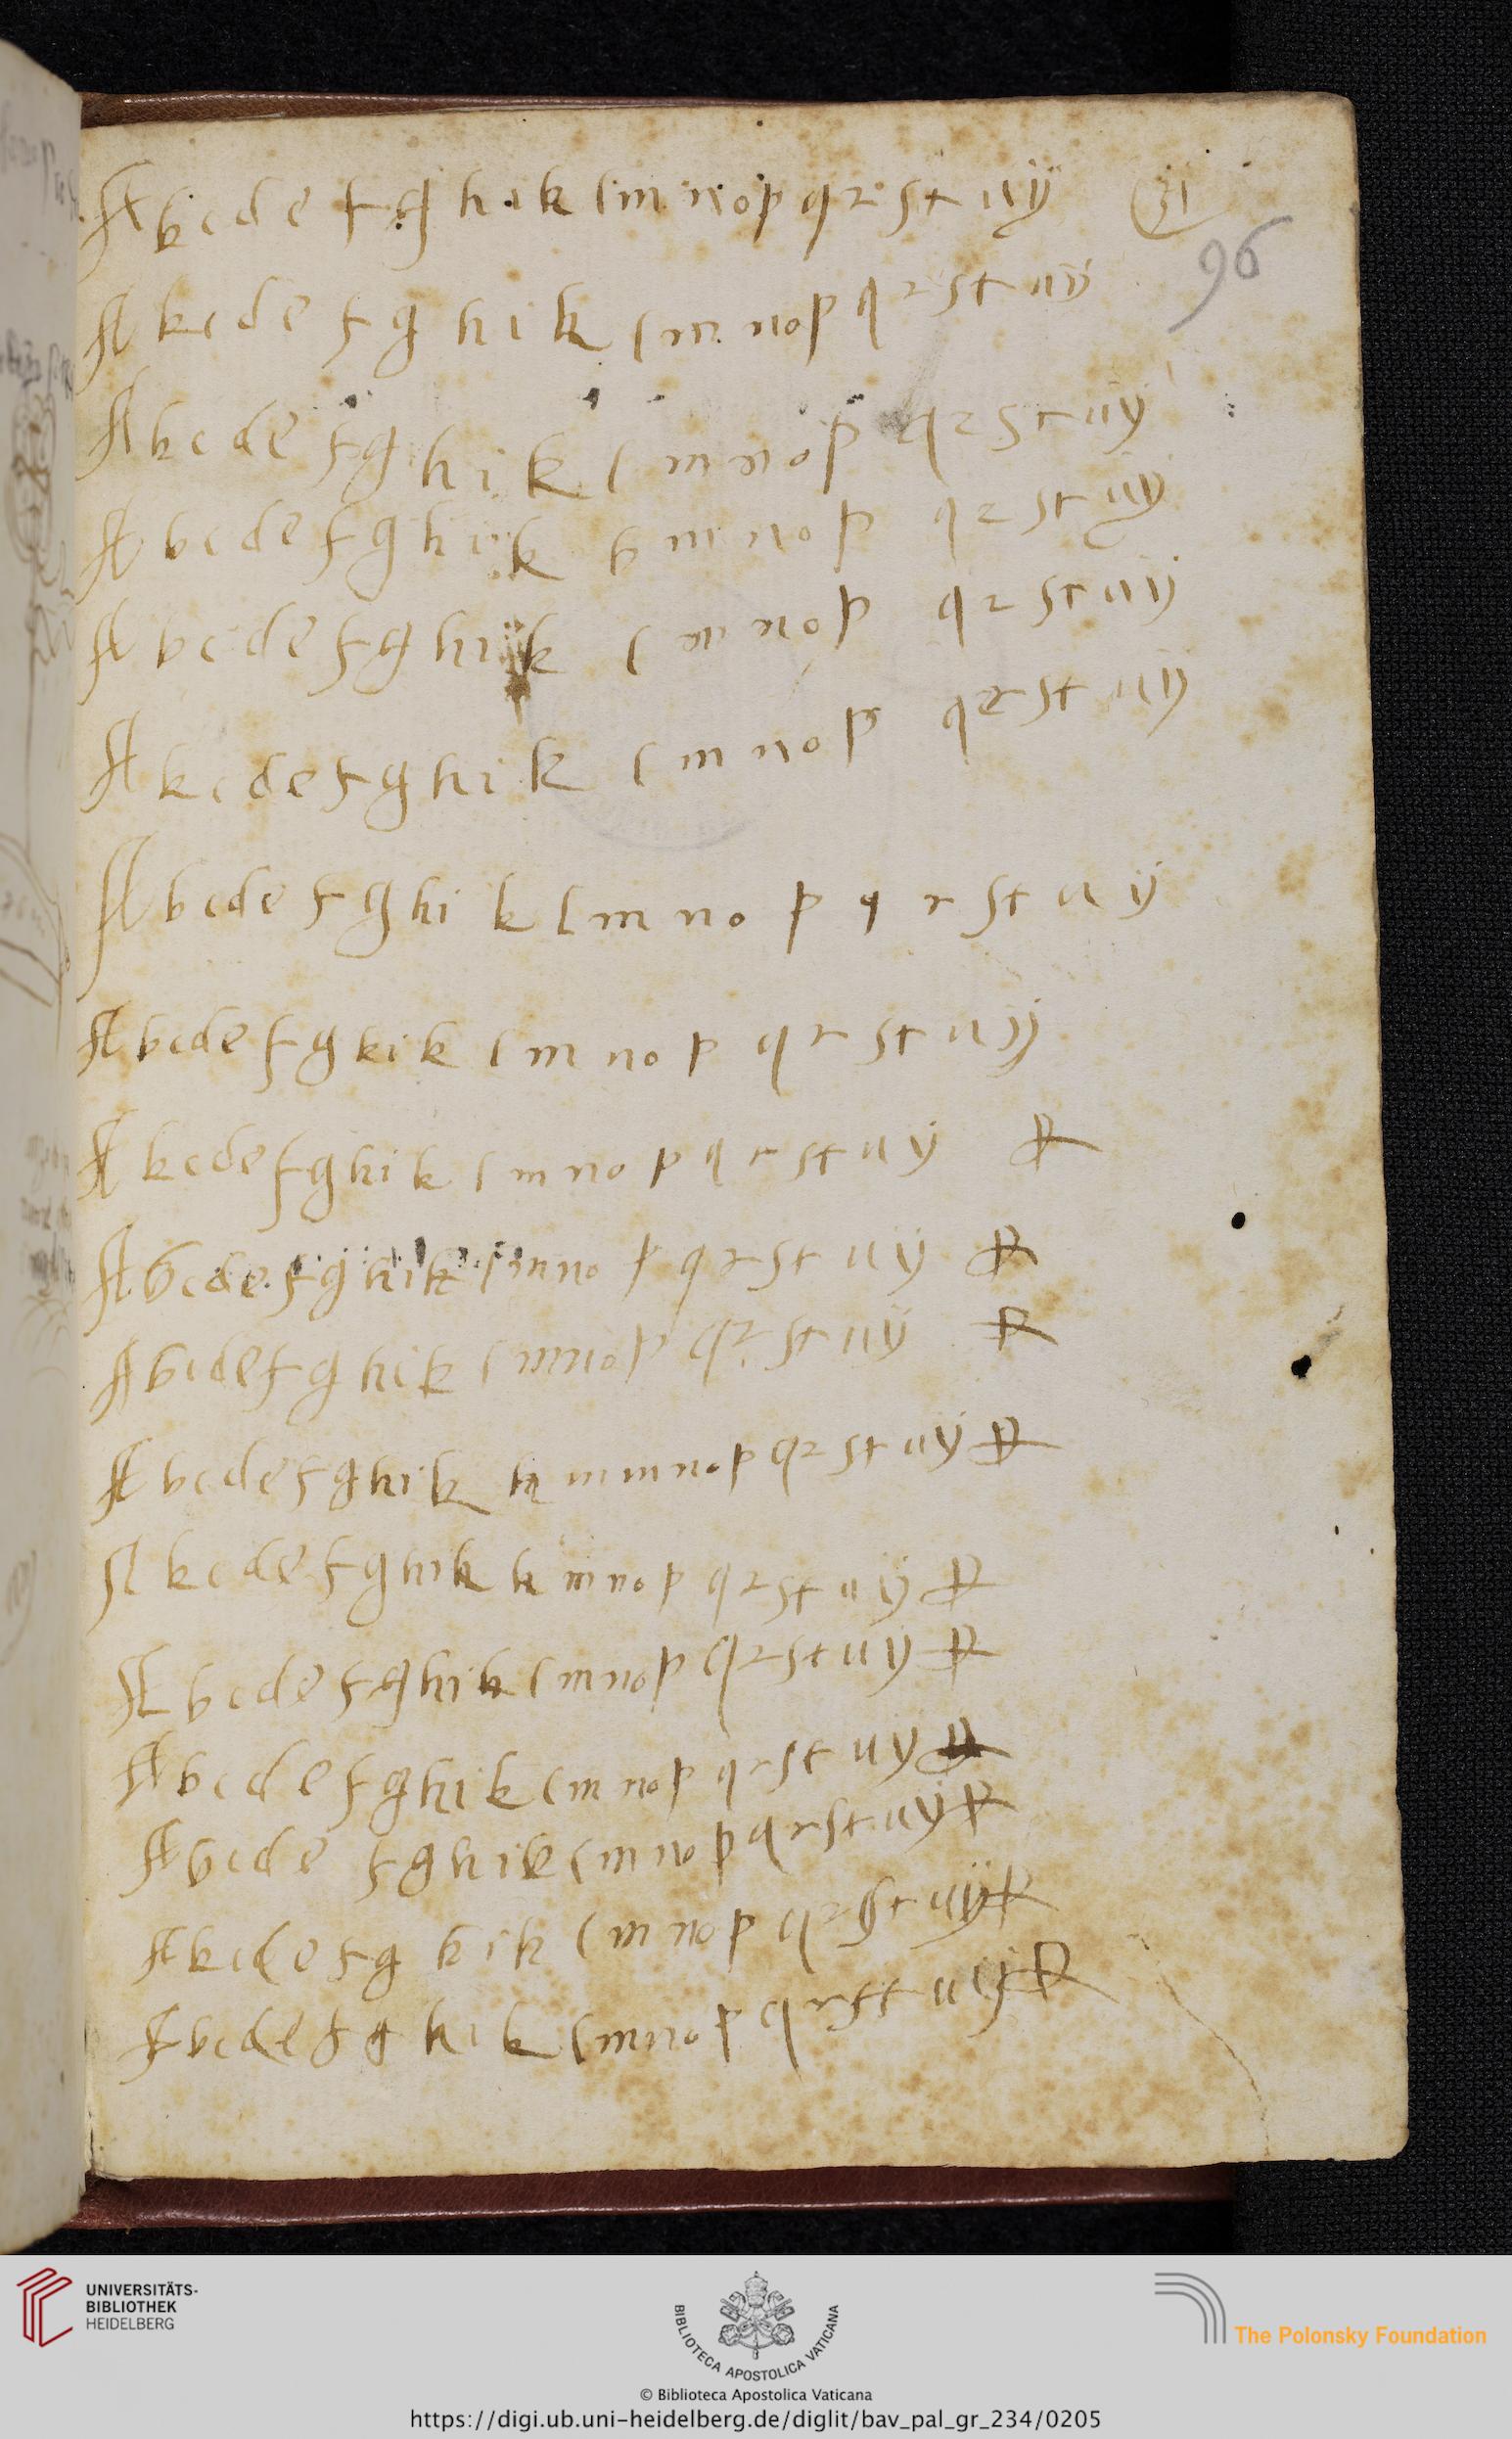 A b c d e f g h i k l m n o p q r s t u ÿ 91
96
A k c d e f g h i k l m n o p q r s t u ÿ
A b c d e f g h i k l m n o p q r s t u ÿ
A b c d e f g h i k b m n o p q r s t u ÿ
A b c d e f g h i k l m n o p q r s t u ÿ
A k c d e f g h i k l m n o p q r s t u ÿ
A b c d e f g h i k l m n o p q r s t u ÿ
A b c d e f g k i k l m n o p q r s t u ÿ
A k c d e f g h i k l m n o p q r s t u ÿ
A b c d e f g h i k l m n o p q r s t u ÿ
A b c d e f g h i k l m n o p q r s t u ÿ
A b c d e f g h i k m m n o p q r s t u ÿ
A k c d e f g h i k k m n o p q r s t u ÿ
A b c d e f g h i k l m n o p q r s t u ÿ
A b c d e f g h i k l m n o p q r s t u ÿ
A b c d e f g h i k l m n o p q r s t u ÿ
A k c d e f g h i k l m n o p q r s t u ÿ
A b c d e f g h i k l m n o p q r s t u ÿ
UNIVERSITÄTS-
BIBLIOTHEK
HEIDELBERG
BIBLIOTECA APOSTOLICA VATICANA
The Polonsky Foundation
© Biblioteca Apostolica Vaticana
https://digi.ub.uni-heidelberg.de/diglit/bav_pal_gr_234/0205